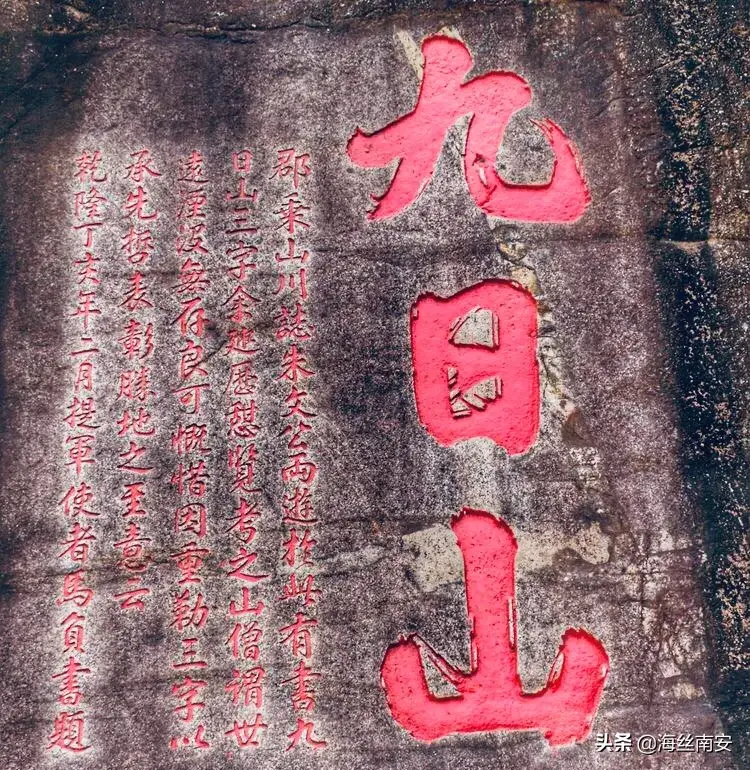 九日山
郡乘山川誌朱文公両遊於此有書九
日山三字余巡歷憇覽考之山僧謂世
遠湮沒無存良可慨惜因重勒三字以
承先哲表彰勝地之至意云
乾隆丁亥年二月提軍使者馬負書題
头条 @海丝南安